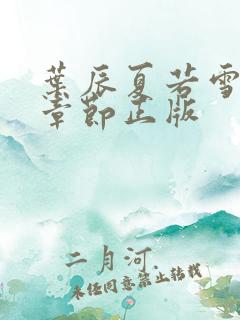 葉辰夏若雪
章節正版
二月河
未经同意禁止转载